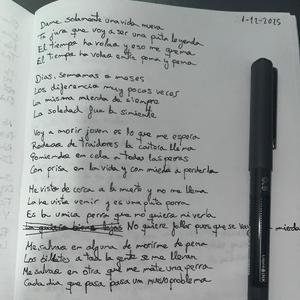 1-12-2025
Dame solamente una vida nueva
Te jura que voy a ser una puta leyenda
El tiempo ha volao y eso me quema
El tiempo ha volao entre poma y pena
Dias, semamas o meses
Los diferencia muy pocas veces
La misma mierda de siempre
La soledad fue la simiente
Voy a morir joven es lo que me espera
Rodeao de traidores la cartera llena
Poniendo en cola a todas las perras
Con prisa en la vida y con miedo a perderla
Me visto de cerca a la muerte y no me llena
La he visto venir y es una puta perra
Es la unica perra que no quiero ni verla
No quiere follar pues que se vaya a mierda
Me salvase en alguna de morirme de pena
Los billetes a toda la gente se me llevan
Me salvase en otra que me mate una perra
Cada dia que pasa, pasa un masivo problema